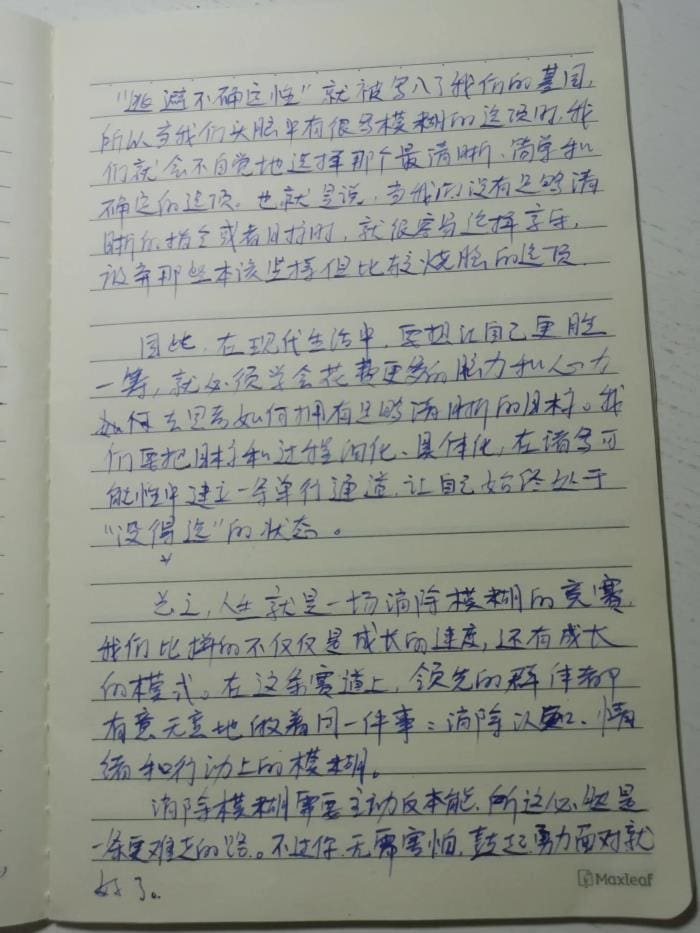 “逃避不确定性”就被写入了我们的基因,
所以当我们头脑中有很多模糊的选项时,我
们就会不自觉地选择那个最清晰、简单和
确定的选项。也就是说,当我们没有足够清
晰的指令或者目标时,就很容易选择享乐,
放弃那些本该坚持但比较烧脑的选项
因此,在现代生活中,要想让自己更胜
一筹,就必须学会花费更多的脑力和心力
如何去思考如何拥有足够清晰的目标。我
们要把目标和过程细化、具体化,在诸多可
能性中建立一条单行通道,让自己始终处于
“没得选”的状态。
总之,人生就是一场消除模糊的竞赛,
我们比拼的不仅仅是成长的速度,还有成长
的模式。在这条赛道上,领先的群体都
有意无意地做着同一件事:消除认知、情
绪和行动上的模糊。
消除模糊需要主动反本能,所这必然是
一条更难走的路。不过你无需害怕,鼓起勇力面对就
好了。
Maxleaf